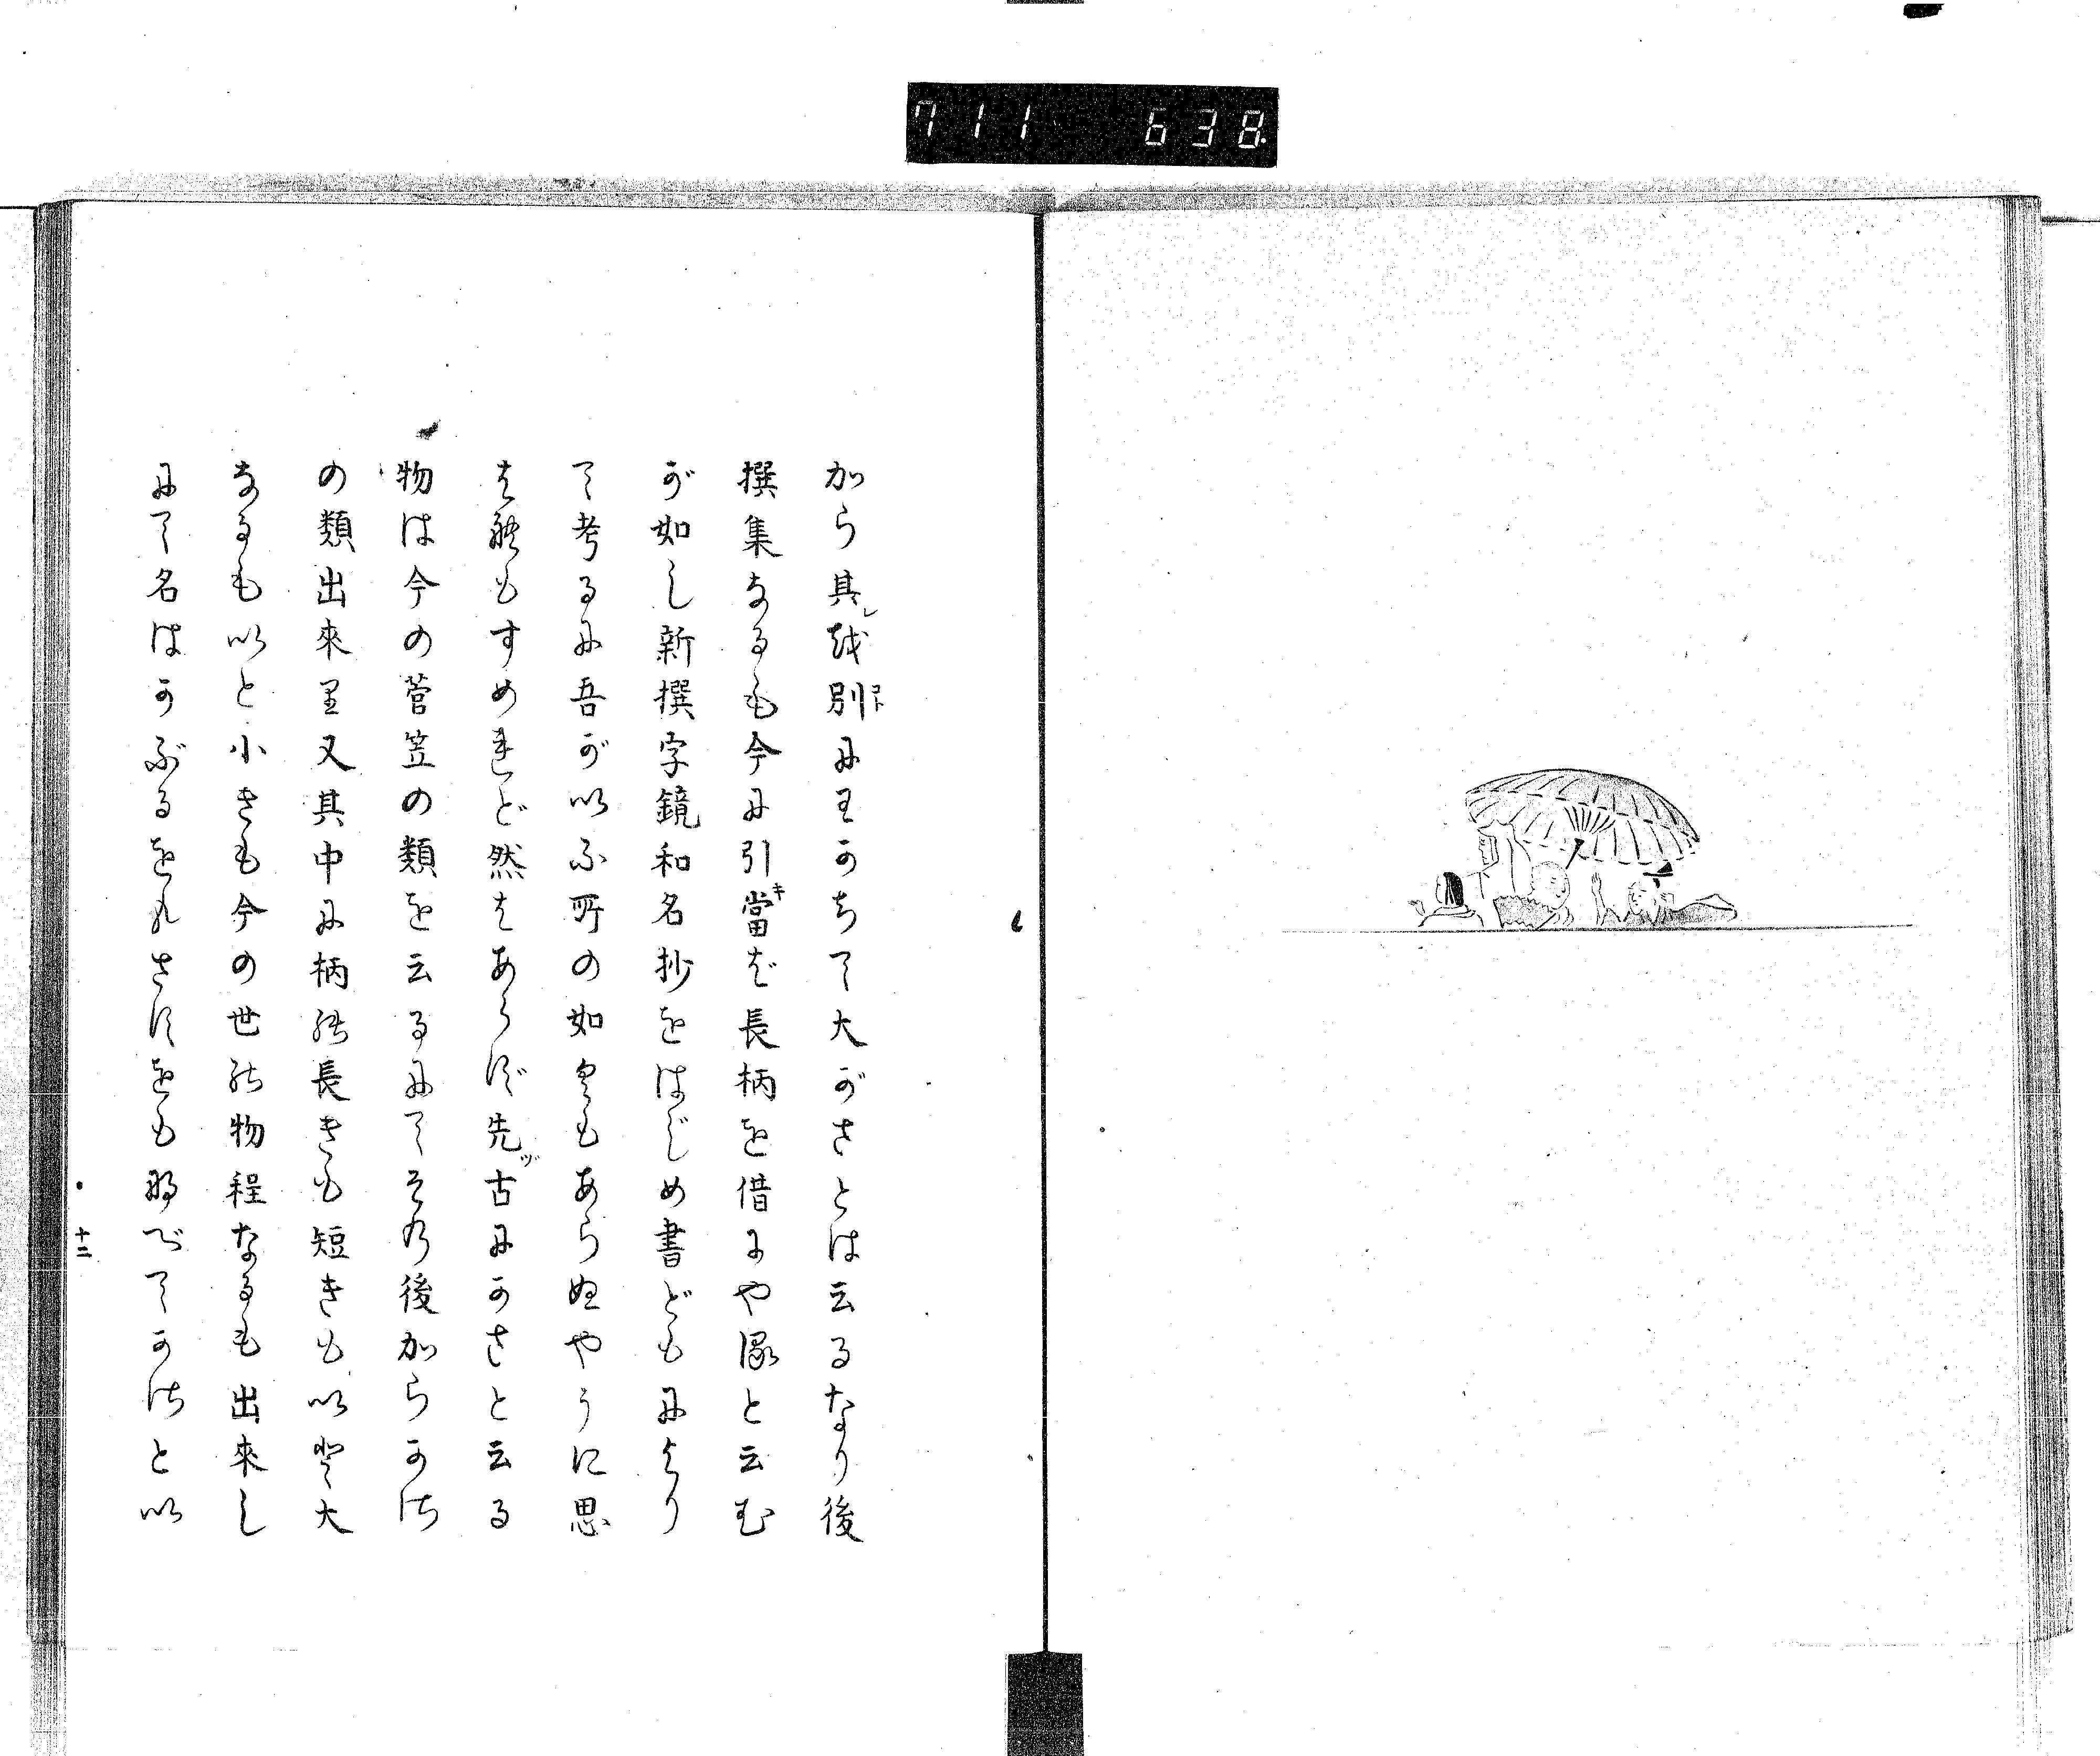 711 638
加ら其レを別コトにわかちて大がさとは云るなり後
撰集なるも今に引キ當ば長柄を借にや得と云む
が如し新撰字鏡和名抄をはじめ書どもにより
て考るに吾がいふ所の如くもあらぬやうに思
はゆもすめれど然はあらず先ヅ古にかさと云る
物は今の菅笠の類を云るにてその後加らかさ
の類出來り又其中に柄の長きも短きもいと大
なるもいと小きも今の世の物程なるも出來し
にて名はかぶるをもさすをも那べてかさとい
十二